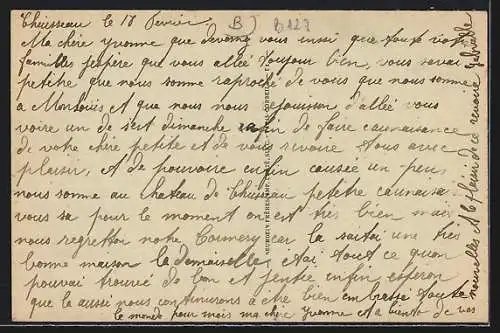 Thuisseau le 17 Fevrier B) B227
Ma chère Yvonne que devenez vous ainsi que toute votre
familles j'espère que vous allée toujour bien, vous savai
petitre que nous somme raproché de vous que nous somme
a Montouis et que nous nous rejouison d'allée vous
voire un de sest dimanche afin de faire connaisance
de votre chère petite et de vous revoire tous avec
plaisir, et de pouvoire enfin causée un peu,
nous somme au chateau de Thuisseau petitre connaisa
vous sa pour le moment on est très bien mais
nous regretton notre Commery car la sai tai une très
bonne maison la demoiselle étai tout ce quon
pouvai trouvé de bon et gentie enfin esperon
que la aussi nous continurons a être bien embrassé toute
le monde pour mois ma chère Yvonne et a bientot de vos
nouvelles et le plaisir de ce revoire Gabrielle